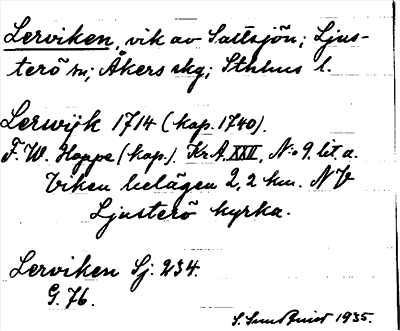 Lerviken, vik av Saltsjön; Ljus-
terö sn; Åkers skg; Sthlms l.
Lerwijk 1714 (kop. 1740).
F. W. Hoppe (kop.). Kr A. XXII, N:o 9. lit. a.
Viken belägen 2,2 km. NV
Ljusterö kyrka.
Lerviken Sj. 234.
G. 76.
S. Sundquist 1935.